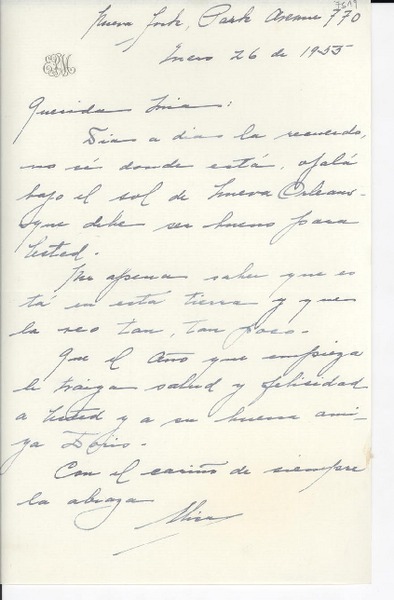 Nueva York, Park Avenue 770
Enero 26 de 1955
Querida
Dias a dias la recuerdo,
no sé donde está, ojalá
bajo el sol de Nueva Orleans
que debe ser bueno para
Usted.
Me apena saber que es
tá en esta tierra y que
la veo tan, tan poco.
Que el Año que empieza
le traiga salud y felicidad
a Usted y a su buena ami-
ga Doris.
Con el cariño de siempre
la abraza